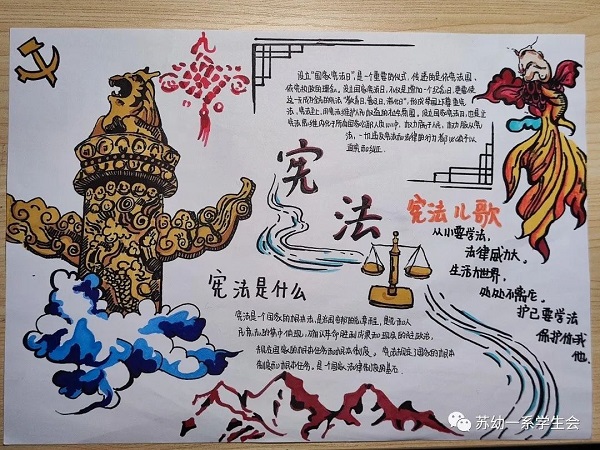 设立"国家宪法日",是一个重要的仪式,传递的是依宪治国、
依宪执政的理念。设立国家宪法日,不仅是增加一个纪念日,更要使
这一天成为全民的宪法"教育日、普及日、深化日",形成举国上下尊重宪
法、宪法至上、用宪法维护人民权益的社会氛围。设立国家宪法日,也是让
宪法思维内化于所有国家公职人员心中。权力属于人民,权力服从宪
法。一切违反宪法和法律的行为都必须予以
追究和纠正。
宪
法
宪法儿歌
从小要学法,
法律威力大。
生活大世界,
处处不离它。
护己要学法
保护你我
他.
宪法是什么
宪法是一个国家的根本法,是治国安邦的总章程,是党和人
民意志的集中体现,
规定国家的根本任务和根本制度。宪法规定了国家的根本
制度和根本任务。是一个国家法律制度的基石
苏幼一系学生会